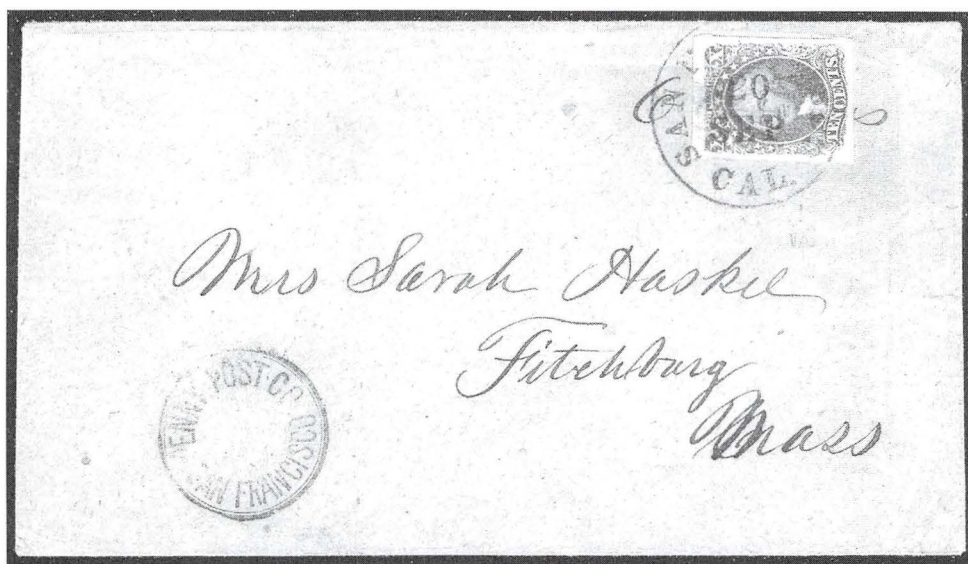 SAN
20
S CAL.
Mrs Sarah Haskel
Fitchburg
Mass
PENNY POST CO.
SAN FRANCISCO